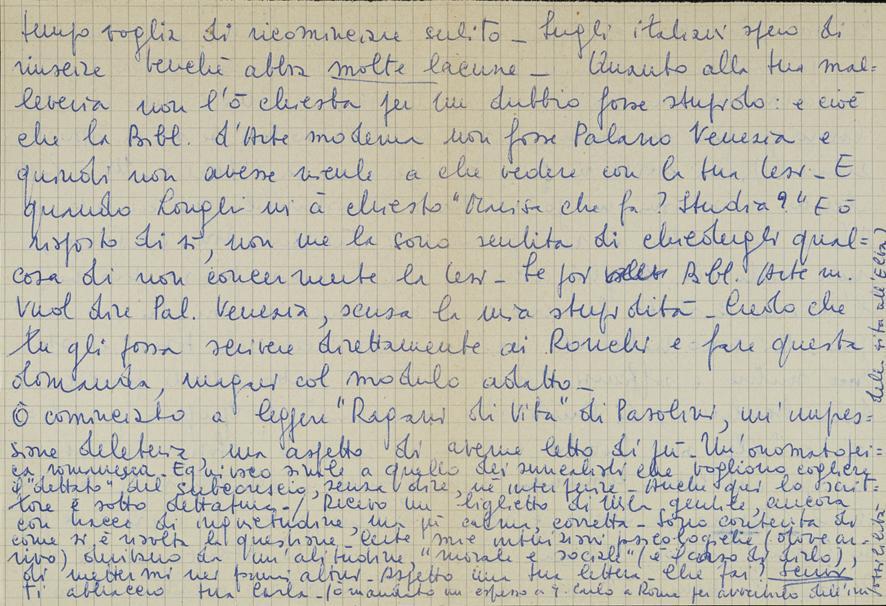 tempo voglia di ricominciare subito - Sugli italiani spero di
riuscire benché abbia molte lacune - Quanto alla tua mal=
leveria non l'ò chiesta per un dubbio forse stupido: e cioè
che la Bibl. d'Arte moderna non fosse Palazzo Venezia e
quindi non avesse niente a che vedere con la tua tesi - E
quando Longhi mi à chiesto "Marisa che fa? Studia?" E ò
risposto di sì, non me la sono sentita di chiedergli qual=
cosa di non concernente la tesi - Se poi Bibl. Arte m.
vuol dire Pal. Venezia, scusa la mia stupidità - Credo che
tu gli possa scrivere direttamente ai Ronchi e fare questa
domanda, magari col modulo adatto -
Ò cominciato a leggere "Ragazzi di Vita" di Pasolini, un'impres=
sione deleteria, ma aspetto di averne letto di più - Un'onomatopei=
ca romanesca - Equivoco simile a quello dei surrealisti che vogliono cogliere
il "dettato" del subconscio, senza dire, né interferire - Anche qui lo scrit=
tore è sotto dettatura -/ Ricevo un biglietto di gentile, ancora
con tracce di inquietudine, ma più calma, corretta - Sono contenta di
come si è risolta la questione, certe mie intuizioni psicologiche (dove ar=
rivo) derivano da un'abitudine, "morale e sociale" (è il caso di dirlo),
di mettermi nei panni altrui - Aspetto una tua lettera - Che fai?
Ti abbraccio tua Carla - (ò mandato un espresso a Carlo a Roma per avvertirlo dell'im=
della vita all'(Elba)